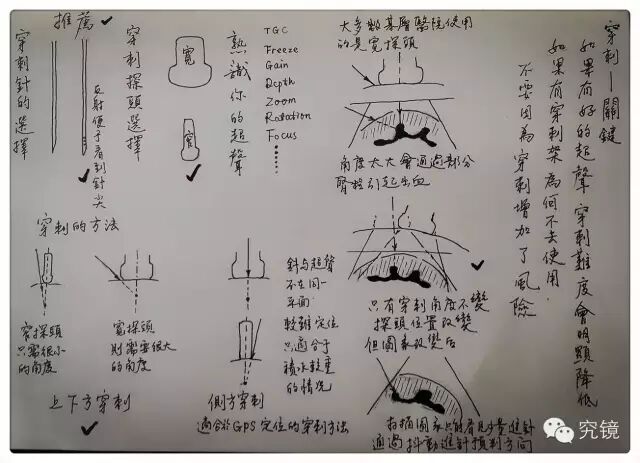 穿刺—關鍵
如果有好的超聲 穿刺難度會明顯降低
如果有穿刺架 為何不去使用
不要因為穿刺增加了風險
推薦
穿刺針的選擇
反射便于看到針尖
穿刺探頭選擇
寬
窄
熟識你的超聲
TGC
Freeze
Gain
Depth
Zoom
Rotation
Focus
大多數基層醫院使用
的是寬探頭
角度太大會通過部分
腎控引起出血
只有穿刺角度不變
探頭位置改變
但圖象改變后
扫描图象只能看見少量進針
通過抖動進針預判方向
穿刺的方法
窄探頭
只需很小
的角度
寬探頭
則需要很大
的角度
上下方穿刺
針与超聲
不在同一
平面
較難定位
只適合于
積水較重
的情況
側方穿刺
適合於GPS定位的穿刺方法
究镜